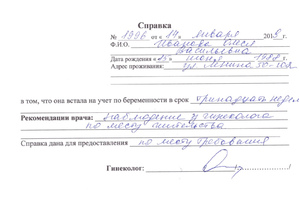 Справка
№ 1996 от «14» января 2013г.
Ф.И.О. Иванова Олеся
Васильевна
Дата рождения «15» июня 1988 г.
Адрес проживания: ул Ленина 50-10а
в том, что она встала на учет по беременности в срок тринадцать недел
Рекомендации врача: наблюдение у гинеколога
по месту жительства
Справка дана для предоставления по месту требования
Гинеколог: